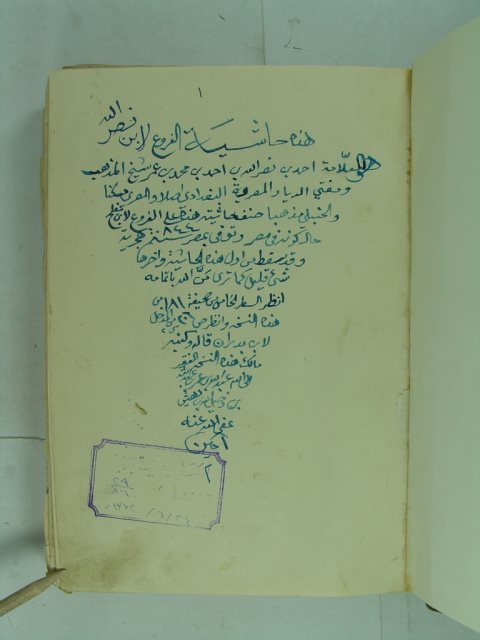 ١
هذه حاشية الفروع لابن نصر الله
للعلامة احمد بن نصر الله بن احمد بن محمد بن عمر شيخ المذهب
ومفتي الديار المصرية البغدادي اصلا والمصري سكنا
والحنبلي مذهبا صنف حاشيته هذه على الفروع لابن مفلح
حال كونه في مصر وتوفي بمصر سنة ٨٤٤ هجرية
وقد سقط من اول هذه الحاشية وآخرها
شئ قليل كما ترى منَّ الله باتمامه
انظر السطر الخامس من صحيفة ١٨١ من
هذه النسخة وانظر ص من المدخل
لابن بدران قاله وكتبه
مالك هذه النسخة الفقير
الى الله عبد الله بن
بن
عفى الله عنه
آمين
٢٩
٨٦